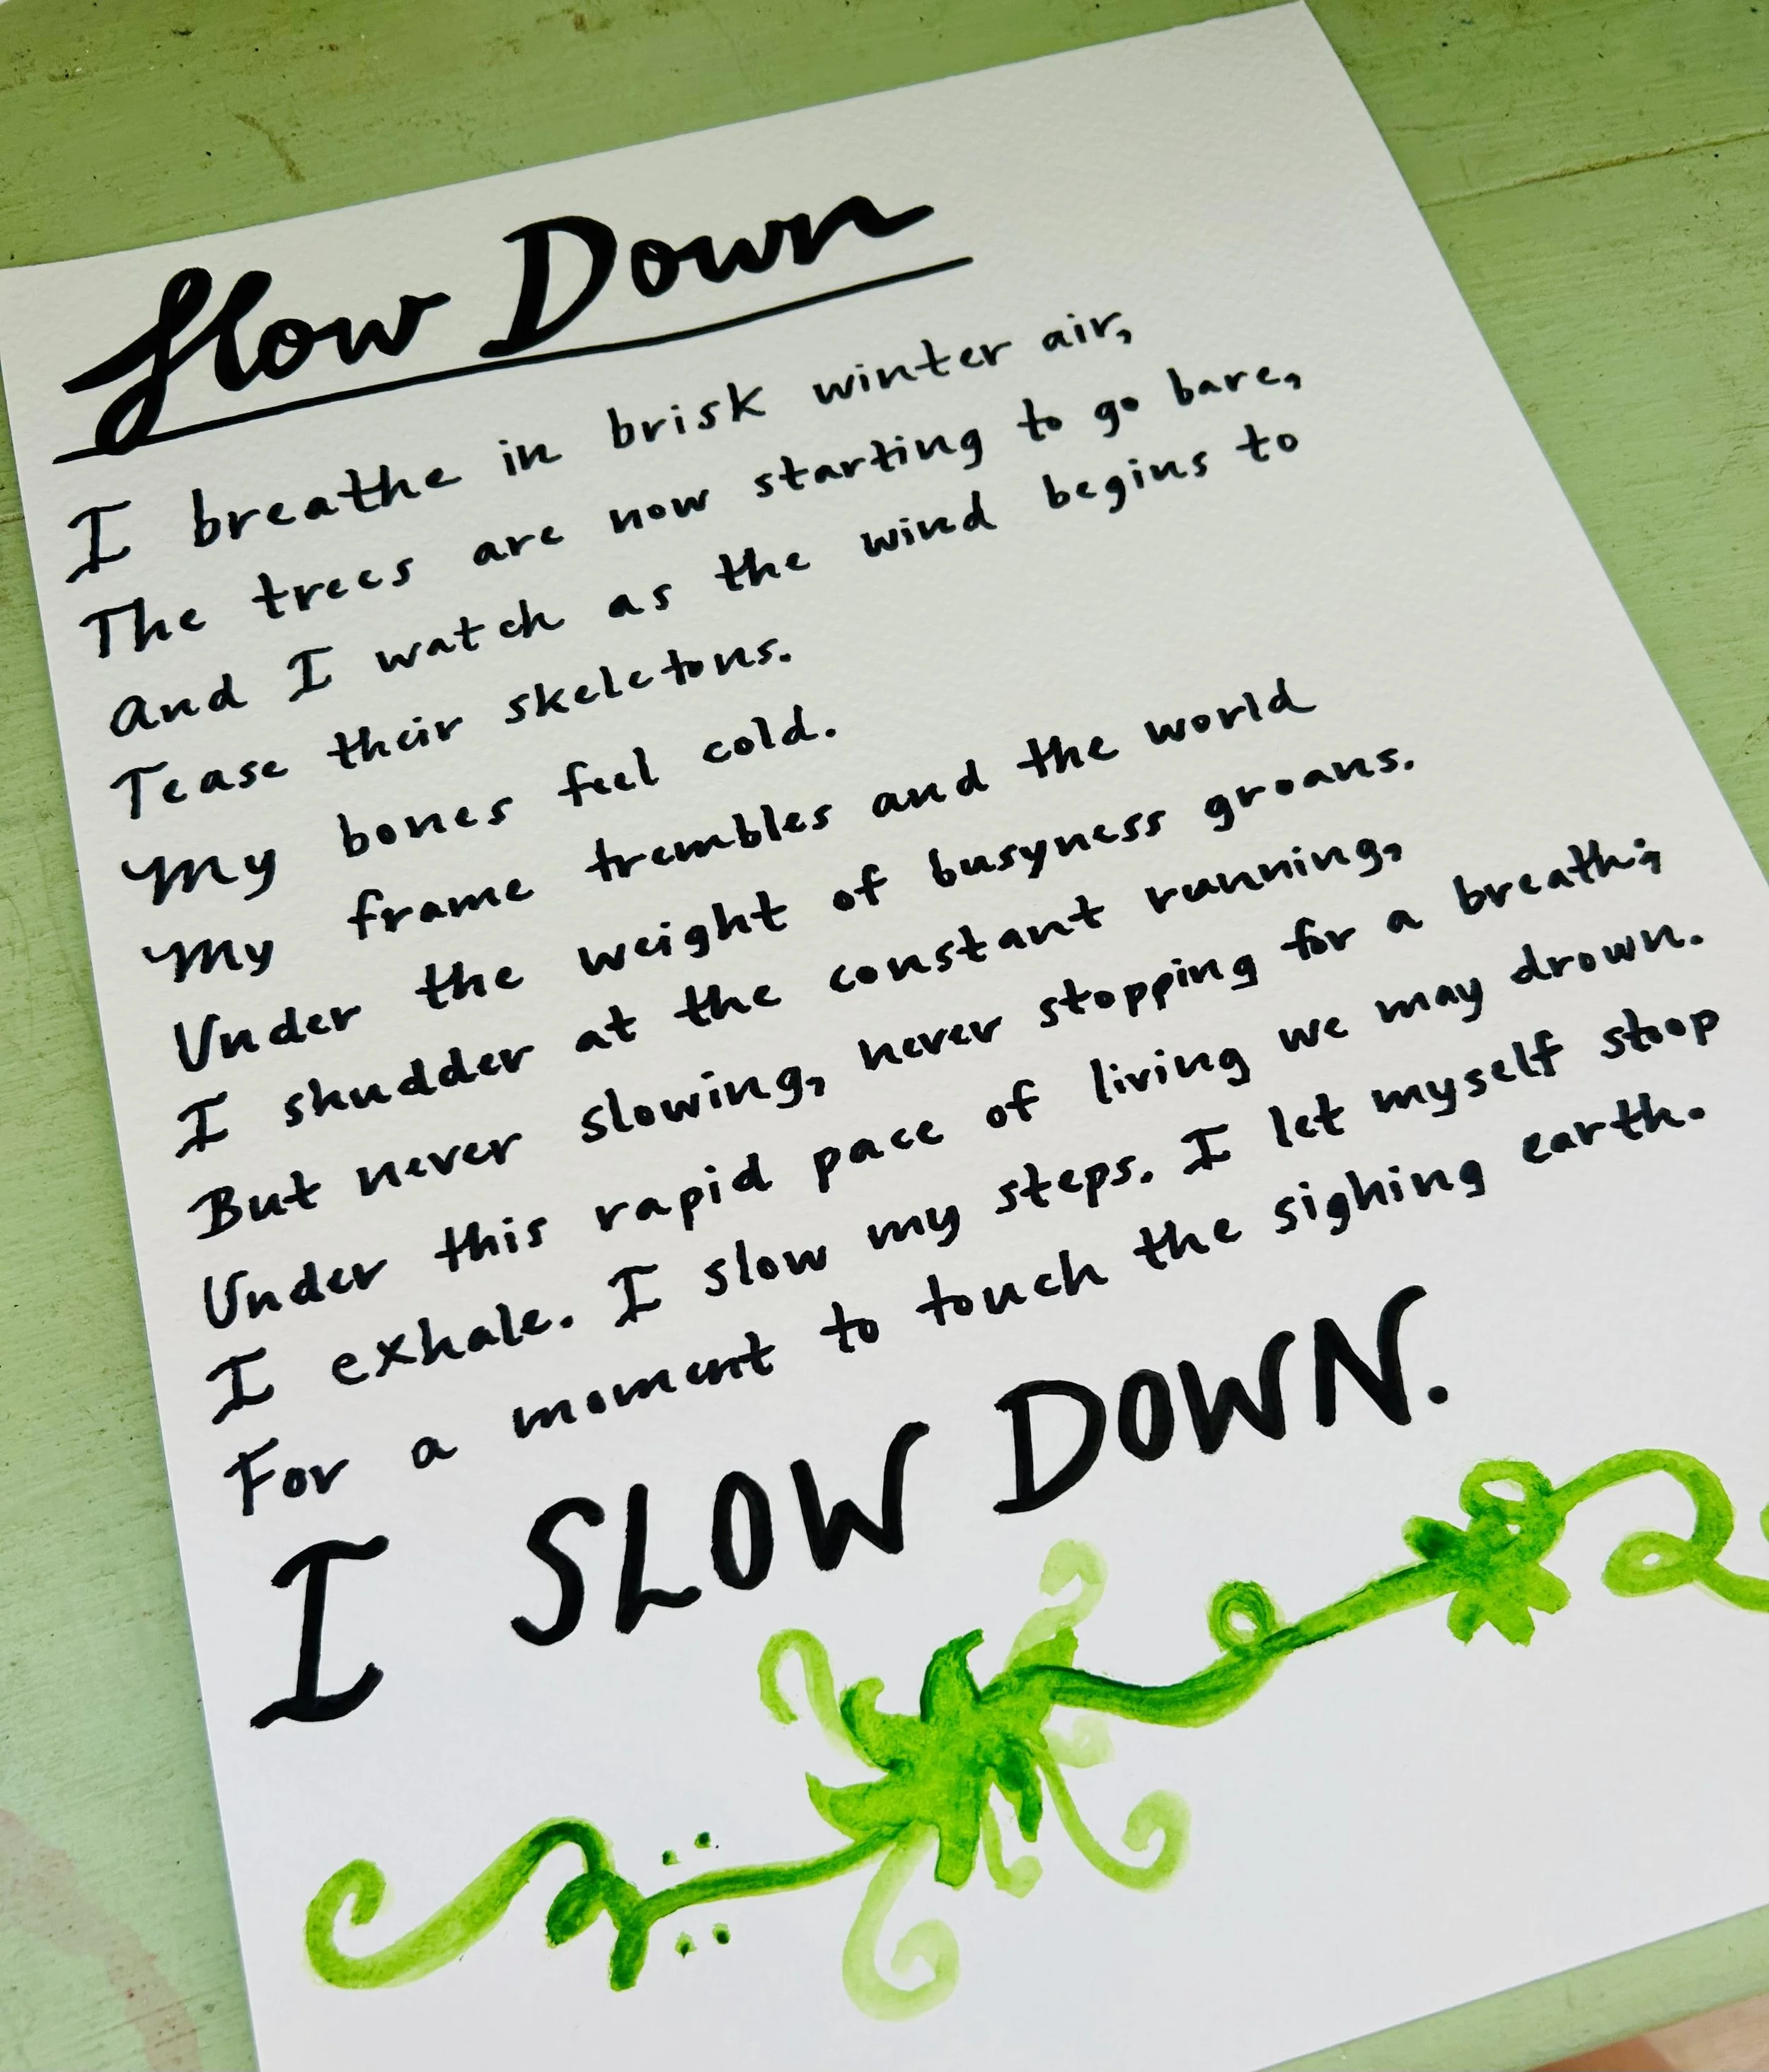 Slow Down
I breathe in brisk winter air,
The trees are now starting to go bare,
And I watch as the wind begins to
Tease their skeletons.
My bones feel cold.
My frame trembles and the world
Under the weight of busyness groans.
I shudder at the constant running,
But never slowing, never stopping for a breath;
Under this rapid pace of living we may drown.
I exhale. I slow my steps. I let myself stoop
For a moment to touch the sighing earth.
I SLOW DOWN.